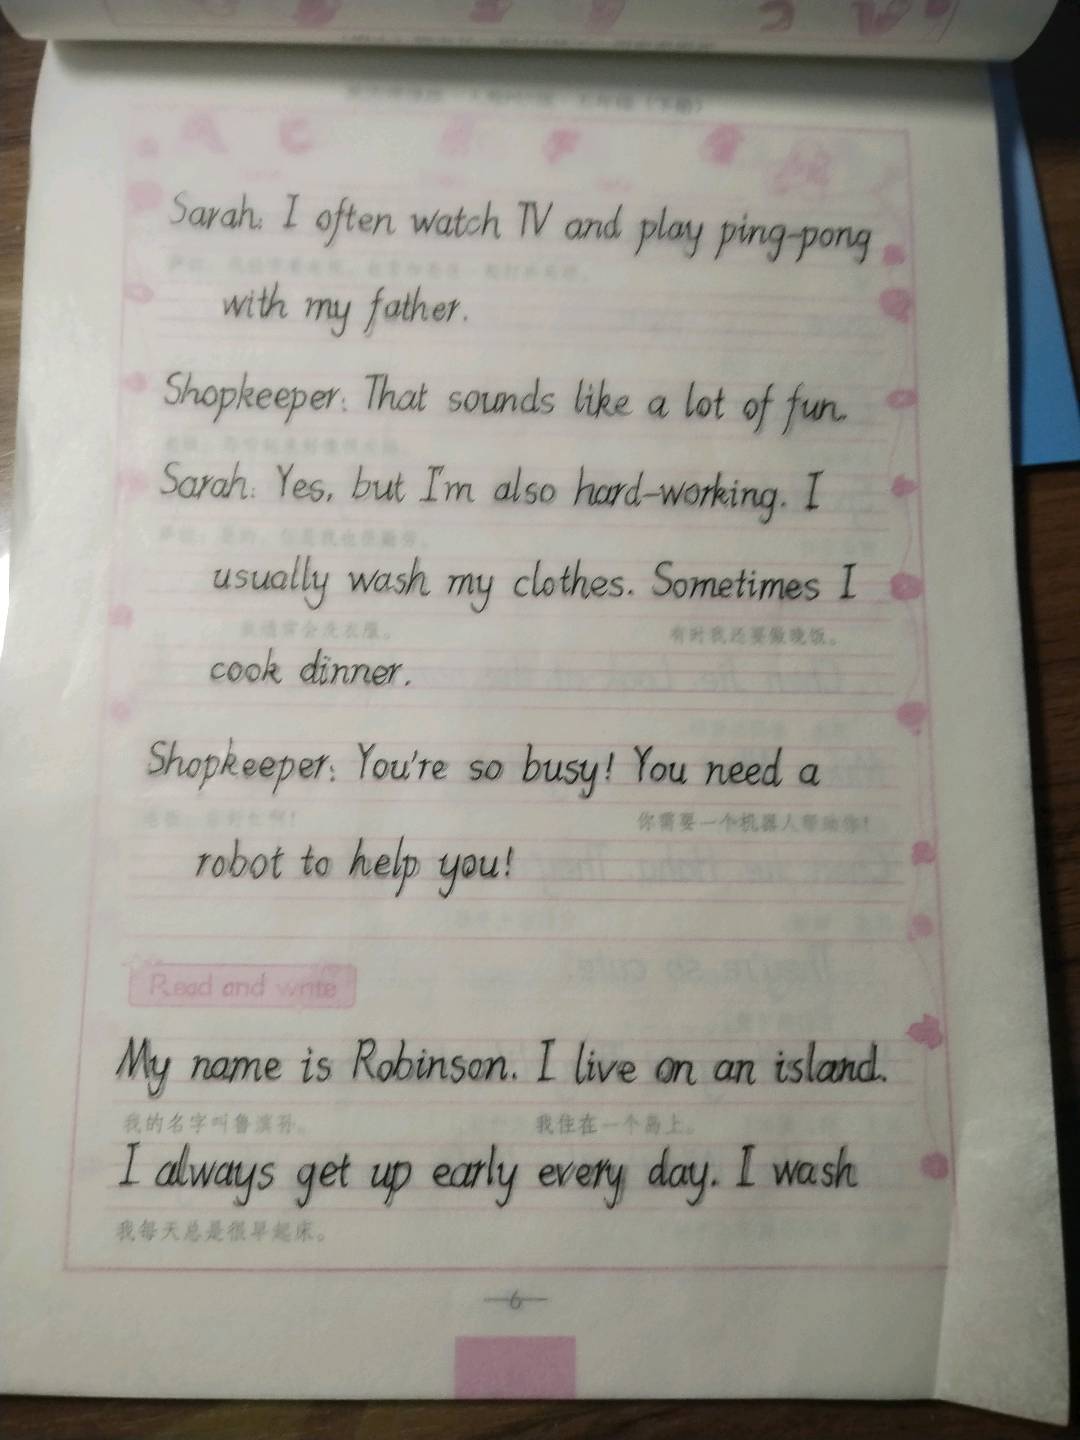 Sarah: I often watch TV and play ping-pong
with my father.
Shopkeeper: That sounds like a lot of fun.
Sarah: Yes, but I'm also hard-working. I
usually wash my clothes. Sometimes I
有时我还要做晚饭。
cook dinner.
Shopkeeper: You're so busy! You need a
你需要一个机器人帮助你!
robot to help you!
Read and write
My name is Robinson. I live on an island.
我的名字叫鲁滨孙。 我住在一个岛上。
I always get up early every day. I wash
我每天总是很早起床。
6